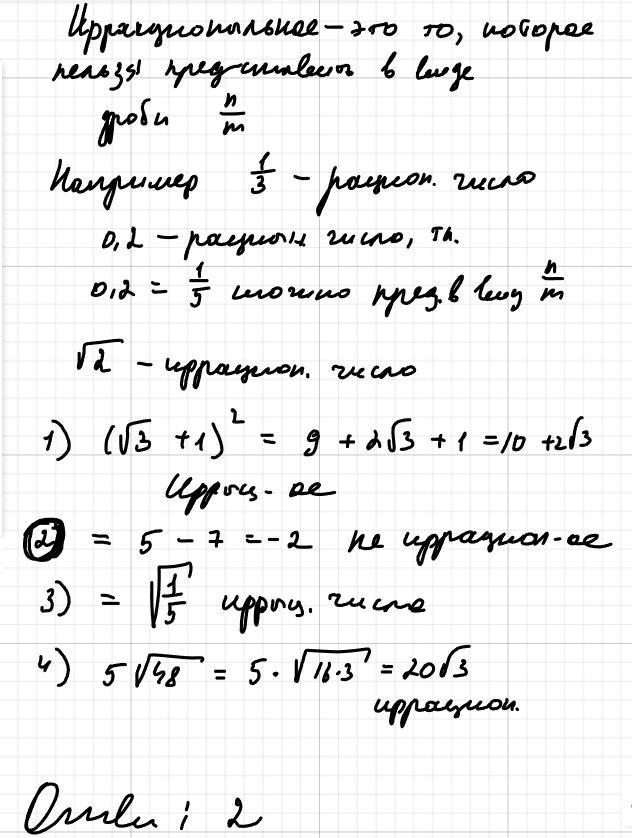 Иррациональное – это то, которое
нельзя представить в виде
дроби n/m
Например 1/3 – рацион. число
0,2 – рацион. число, т.к.
0,2 = 1/5 можно пред. в виду n/m
√2 – иррацион. число
1) (√3 + 1)² = 9 + 2√3 + 1 = 10 + 2√3
Иррац-ое
2) = 5 − 7 = −2 не иррацион-ое
3) = √(1/5) иррац. число
4) 5√48 = 5 · √(16·3) = 20√3
иррацион.
Ответ: 2